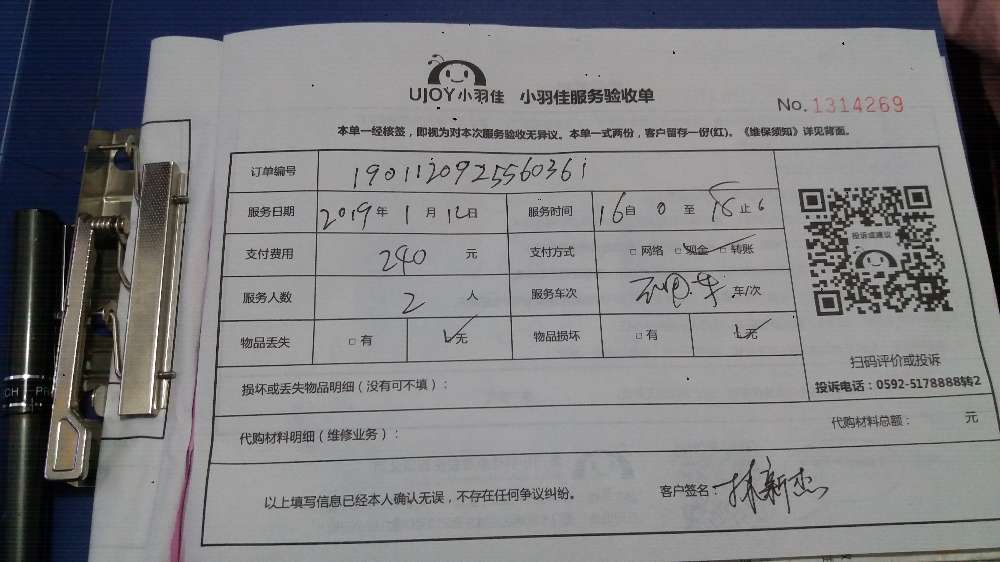 UJOY小羽佳 小羽佳服务验收单
No.1314269
本单一经核签，即视为对本次服务验收无异议。本单一式两份，客户留存一份(红)。《维保须知》详见背面。
订单编号 1901120925560361
服务日期 2019年1月12日 服务时间 16自0至18止6
支付费用 240 元 支付方式 □网络 □现金 □转账
服务人数 2 人 服务车次 车/次
物品丢失 □有 □无 物品损坏 □有 □无
投诉或建议
扫码评价或投诉
投诉电话：0592-5178888转2
损坏或丢失物品明细（没有可不填）：
代购材料明细（维修业务）： 代购材料总额： 元
以上填写信息已经本人确认无误，不存在任何争议纠纷。 客户签名：林新杰